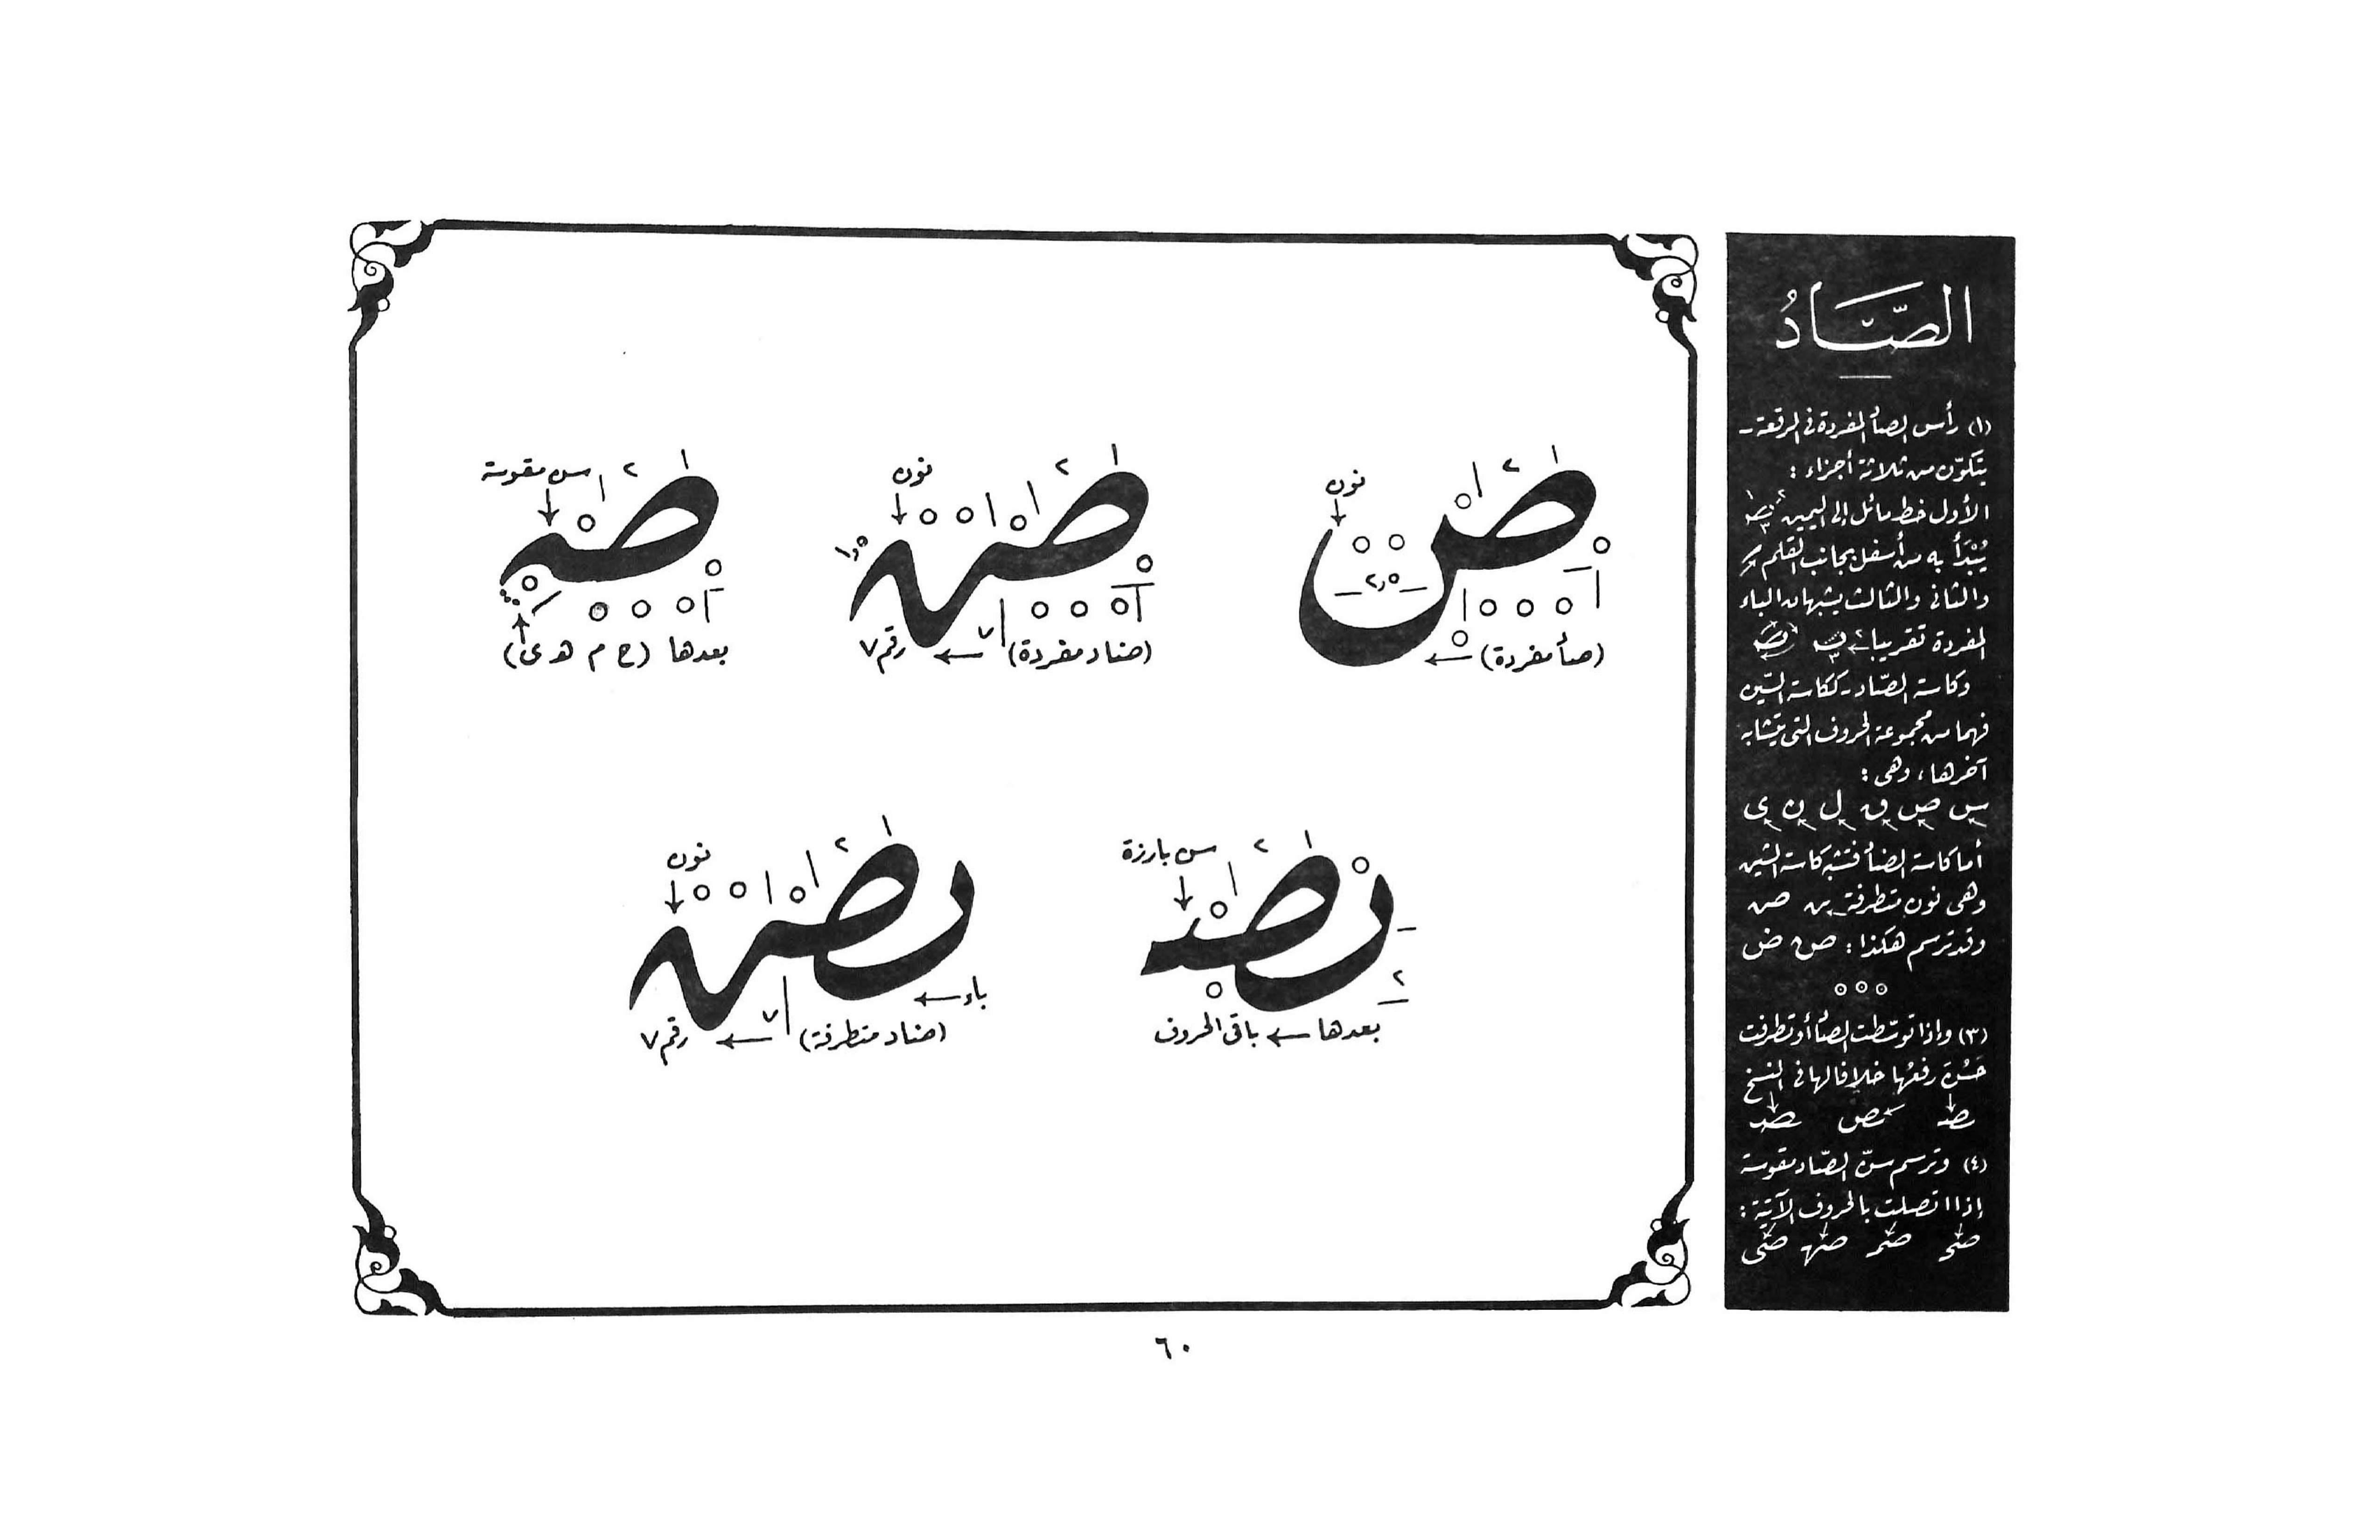 الصَّادُ
(١) رأس الصاد المفردة في الرقعة -
يتكوّن من ثلاثة أجزاء :
الأول خط مائل إلى اليمين
يُبْدَأُ به من أسفل بجانب القلم
والثاني والثالث يشبهان الباء
المفردة تقريبا
وكاسة الصّاد - ككاسة السّين
فهما من مجموعة الحروف التي يتشابه
آخرها، وهى :
س ص ق ل ن ى
أما كاسة الضاد فتشبه كاسة الشين
وهى نون متطرفة
وقد ترسم هكذا : ض ض
(٣) وإذا توسّطت الصاد أو تطرفت
حَسُنَ رفعُها خلافا لها في النسخ
(٤) وترسم سنّ الصّاد مقوسة
إذا اتصلت بالحروف الآتية :
نون
٢
٢٫٥
ص
(صاد مفردة)
نون
٢
١٫٥
٧
(ضاد مفردة)
رقم ٧
سن مقوسة
٢
بعدها (ح م ه ى)
سن بارزة
٢
٢
بعدها ← باقى الحروف
نون
٢
باء
٧
(ضاد متطرفة)
رقم ٧
٦٠